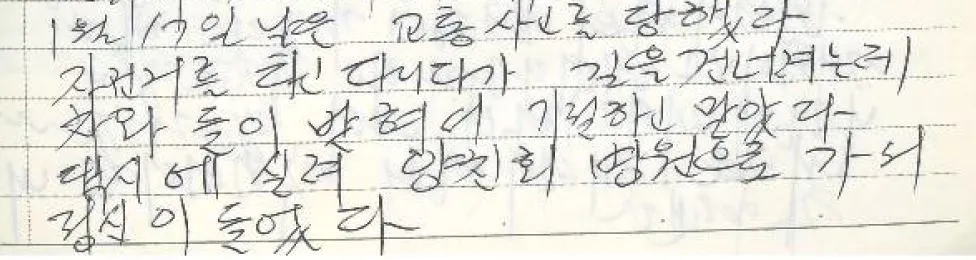 1월 17일 날은 교통사고를 당했다
자전거를 타고 다니다가 길을 건너려는데
차와 들이 받혀서 기절하고 말았다
택시에 실려 양친회 병원으로 가서
정신이 들었다